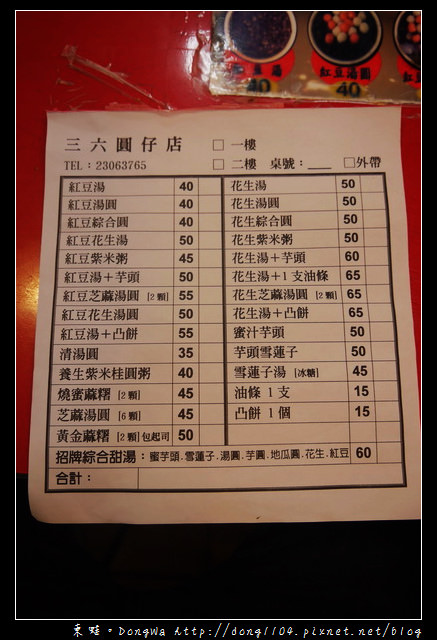 紅豆湯
紅豆湯圓
40
40
三六圓仔店 □ 一樓
TEL：23063765 □ 二樓 桌號：___ □外帶
紅豆湯 40 花生湯 50
紅豆湯圓 40 花生湯圓 50
紅豆綜合圓 40 花生綜合圓 50
紅豆花生湯 50 花生紫米粥 50
紅豆紫米粥 45 花生湯＋芋頭 60
紅豆湯＋芋頭 50 花生湯＋1支油條 65
紅豆芝蔴湯圓 [2顆] 55 花生芝蔴湯圓 [2顆] 65
紅豆花生湯圓 50 花生湯＋凸餅 65
紅豆湯＋凸餅 55 蜜汁芋頭 50
清湯圓 35 芋頭雪蓮子 50
養生紫米桂圓粥 40 雪蓮子湯 [冰糖] 45
燒蜜蔴糬 [2顆] 45 油條 1支 15
芝蔴湯圓 [6顆] 45 凸餅 1個 15
黃金蔴糬 [2顆]包起司 50
招牌綜合甜湯：蜜芋頭.雪蓮子.湯圓.芋圓.地瓜圓.花生.紅豆 60
合計：
東蛙。DongWa http://dong1104.pixnet.net/blog